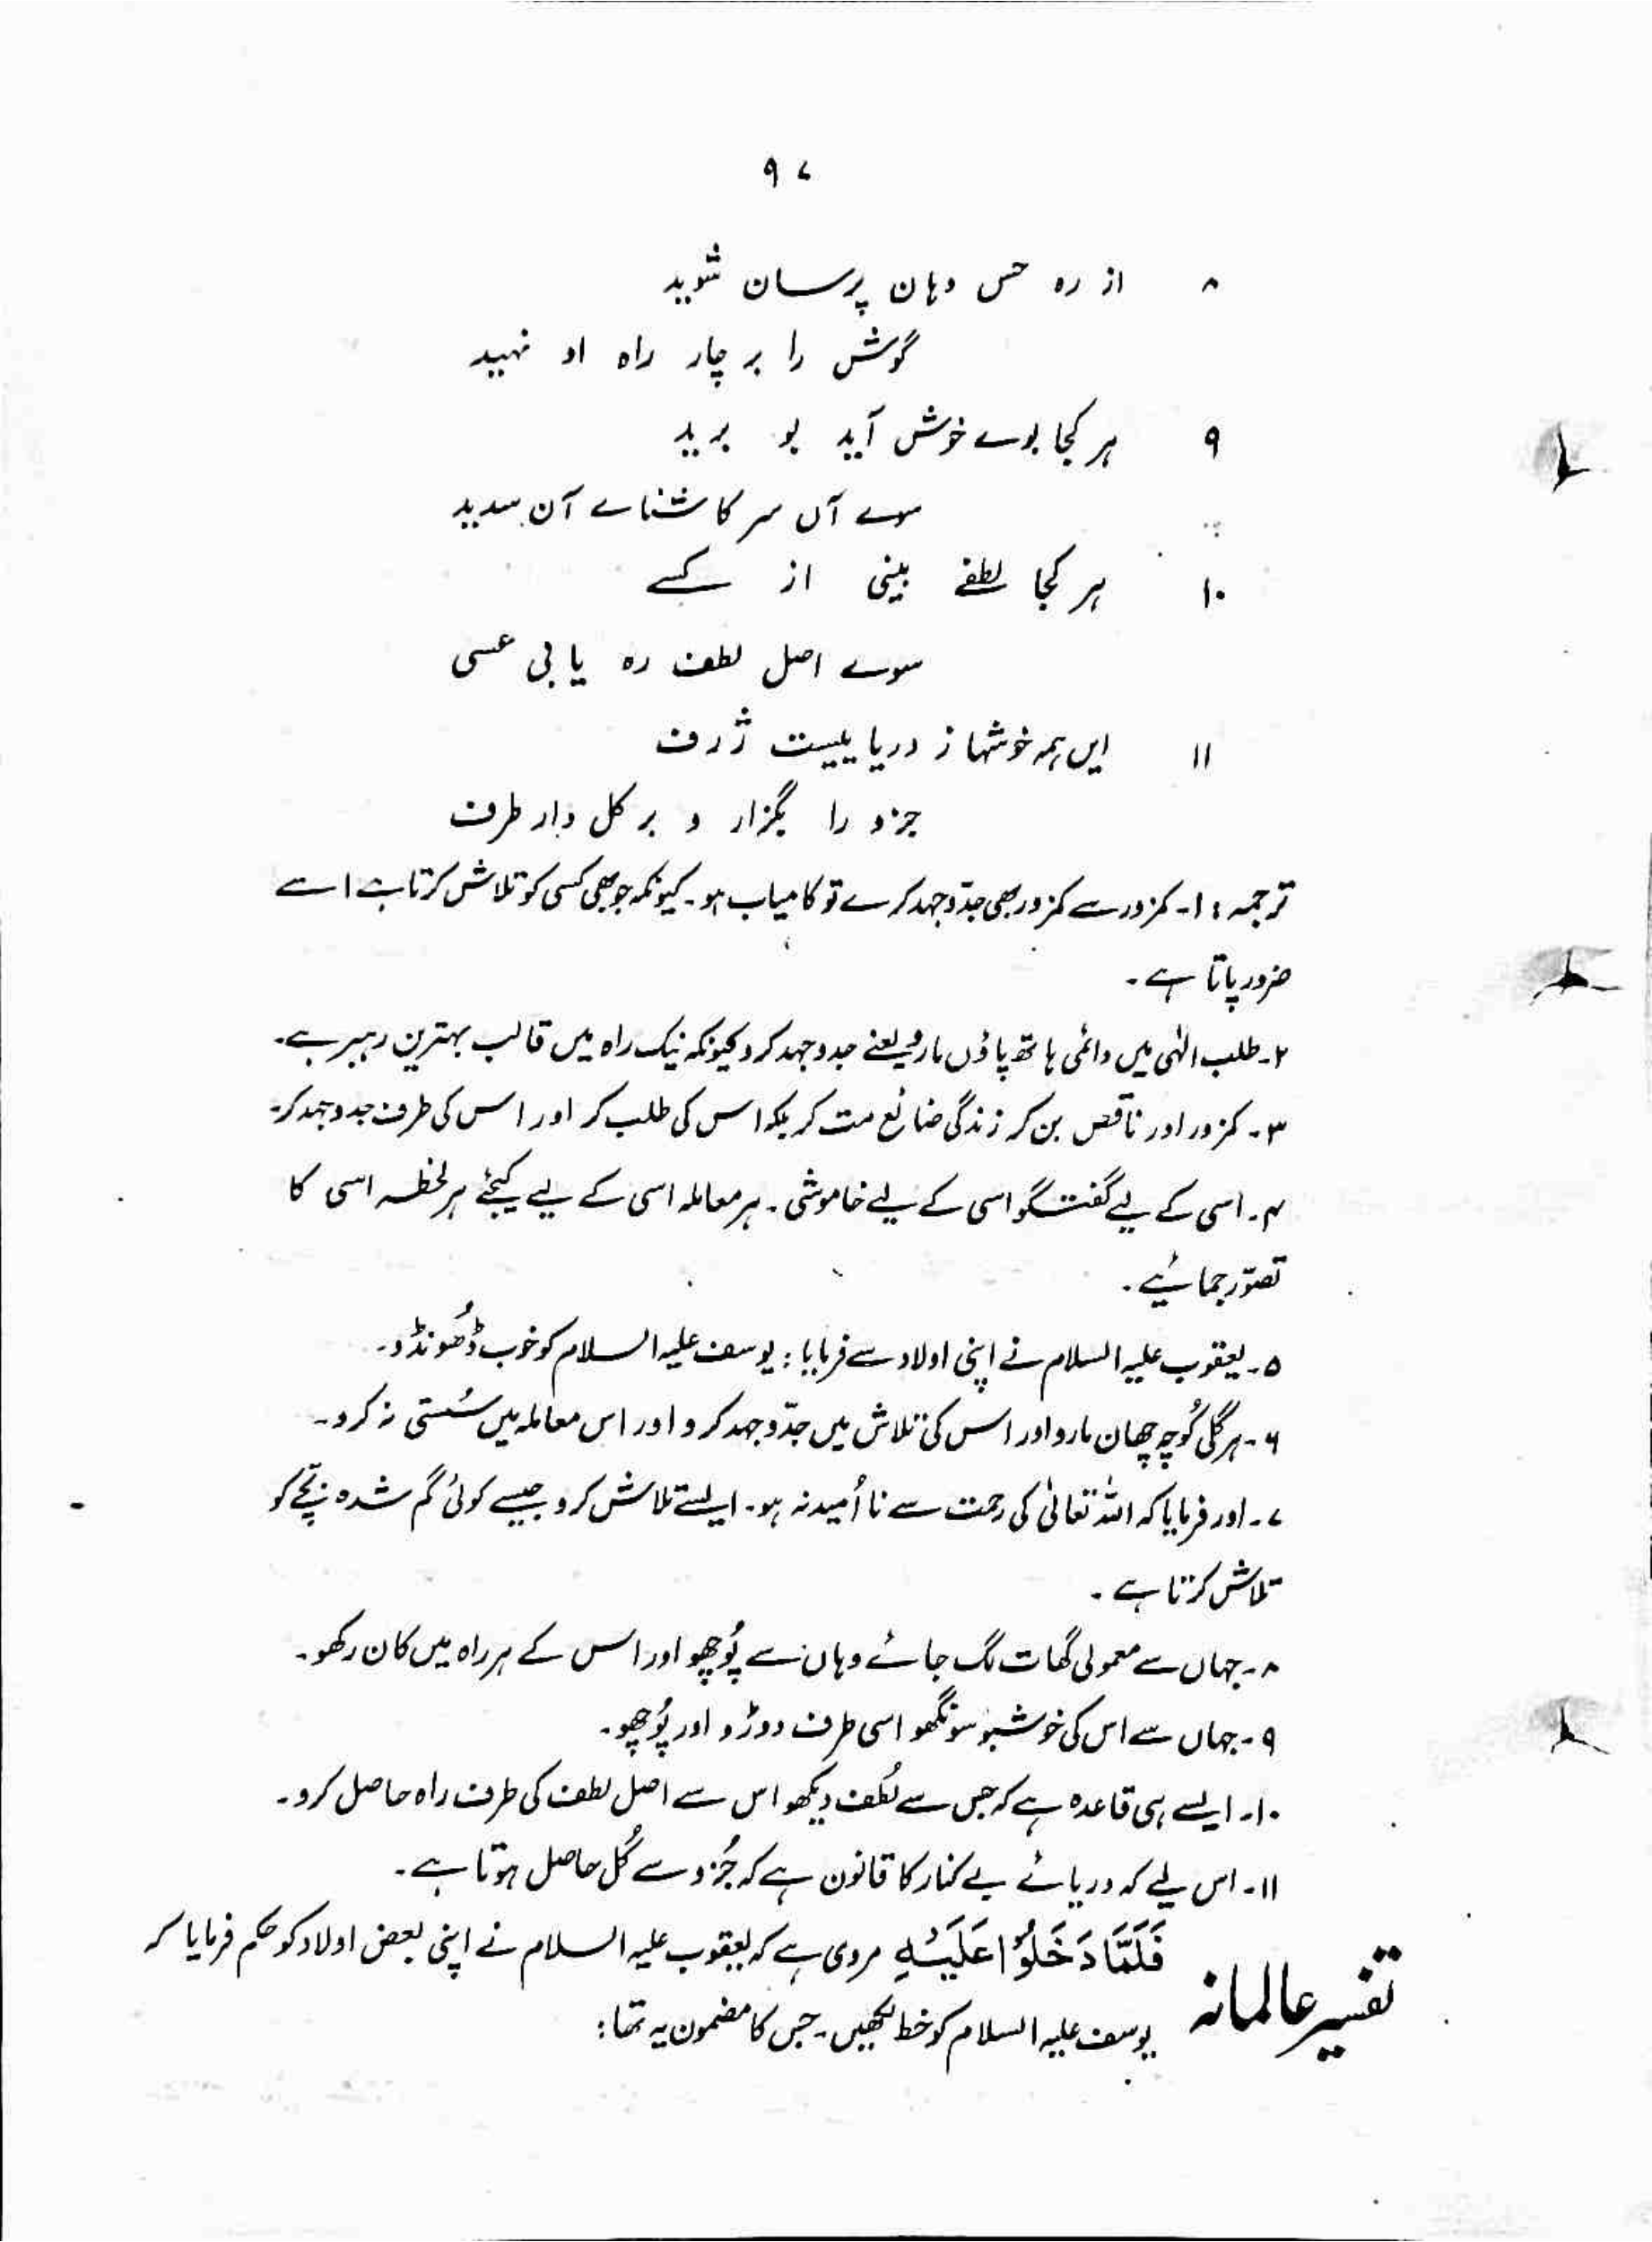 ۹۷
۸ از رہ حس دہان پرسان شوید
گوش را بر چار راہ او نہید
۹ ہر کجا بوے خوش آید بو برید
سوے آں سر کاشناے آن سدید
۱۰ ہر کجا لطفے بینی از کسے
سوے اصل لطف رہ یابی عسی
۱۱ ایں ہمہ خوشہا ز دریاییست ژرف
جزو را بگزار و بر کل دار طرف
ترجمہ: ۱۔ کمزور سے کمزور بھی جدّوجہد کرے تو کامیاب ہو۔ کیونکہ جو بھی کسی کو تلاش کرتا ہے اسے
ضرور پاتا ہے۔
۲۔ طلب الٰہی میں دائمی ہاتھ پاؤں مارو یعنے جدوجہد کرو کیونکہ نیک راہ میں قالب بہترین رہبر ہے۔
۳۔ کمزور اور ناقص بن کر زندگی ضائع مت کر بلکہ اس کی طلب کر اور اس کی طرف جدوجہد کر۔
۴۔ اسی کے لیے گفتگو اسی کے لیے خاموشی۔ ہر معاملہ اسی کے لیے کیجئے ہر لحظہ اسی کا
تصوّر جمائیے۔
۵۔ یعقوب علیہ السلام نے اپنی اولاد سے فرمایا: یوسف علیہ السلام کو خوب ڈھُونڈو۔
۶۔ ہر گلی کُوچہ چھان مارو اور اس کی تلاش میں جدّوجہد کرو اور اس معاملہ میں سُستی نہ کرو۔
۷۔ اور فرمایا کہ اللہ تعالیٰ کی رحمت سے نا اُمید نہ ہو۔ ایسے تلاش کرو جیسے کوئی گم شدہ بچّے کو
تلاش کرتا ہے۔
۸۔ جہاں سے معمولی گھات لگ جائے وہاں سے پُوچھو اور اس کے ہر راہ میں کان رکھو۔
۹۔ جہاں سے اس کی خوشبو سونگھو اسی طرف دوڑو اور پُوچھو۔
۱۰۔ ایسے ہی قاعدہ ہے کہ جس سے لُطف دیکھو اس سے اصل لطف کی طرف راہ حاصل کرو۔
۱۱۔ اس لیے کہ دریائے بے کنار کا قانون ہے کہ جُزو سے کُل حاصل ہوتا ہے۔
تفسیر عالمانہ فَلَمَّا دَخَلُوْا عَلَیْہِ مروی ہے کہ یعقوب علیہ السلام نے اپنی بعض اولاد کو حکم فرمایا کہ
یوسف علیہ السلام کو خط لکھیں۔ جس کا مضمون یہ تھا: